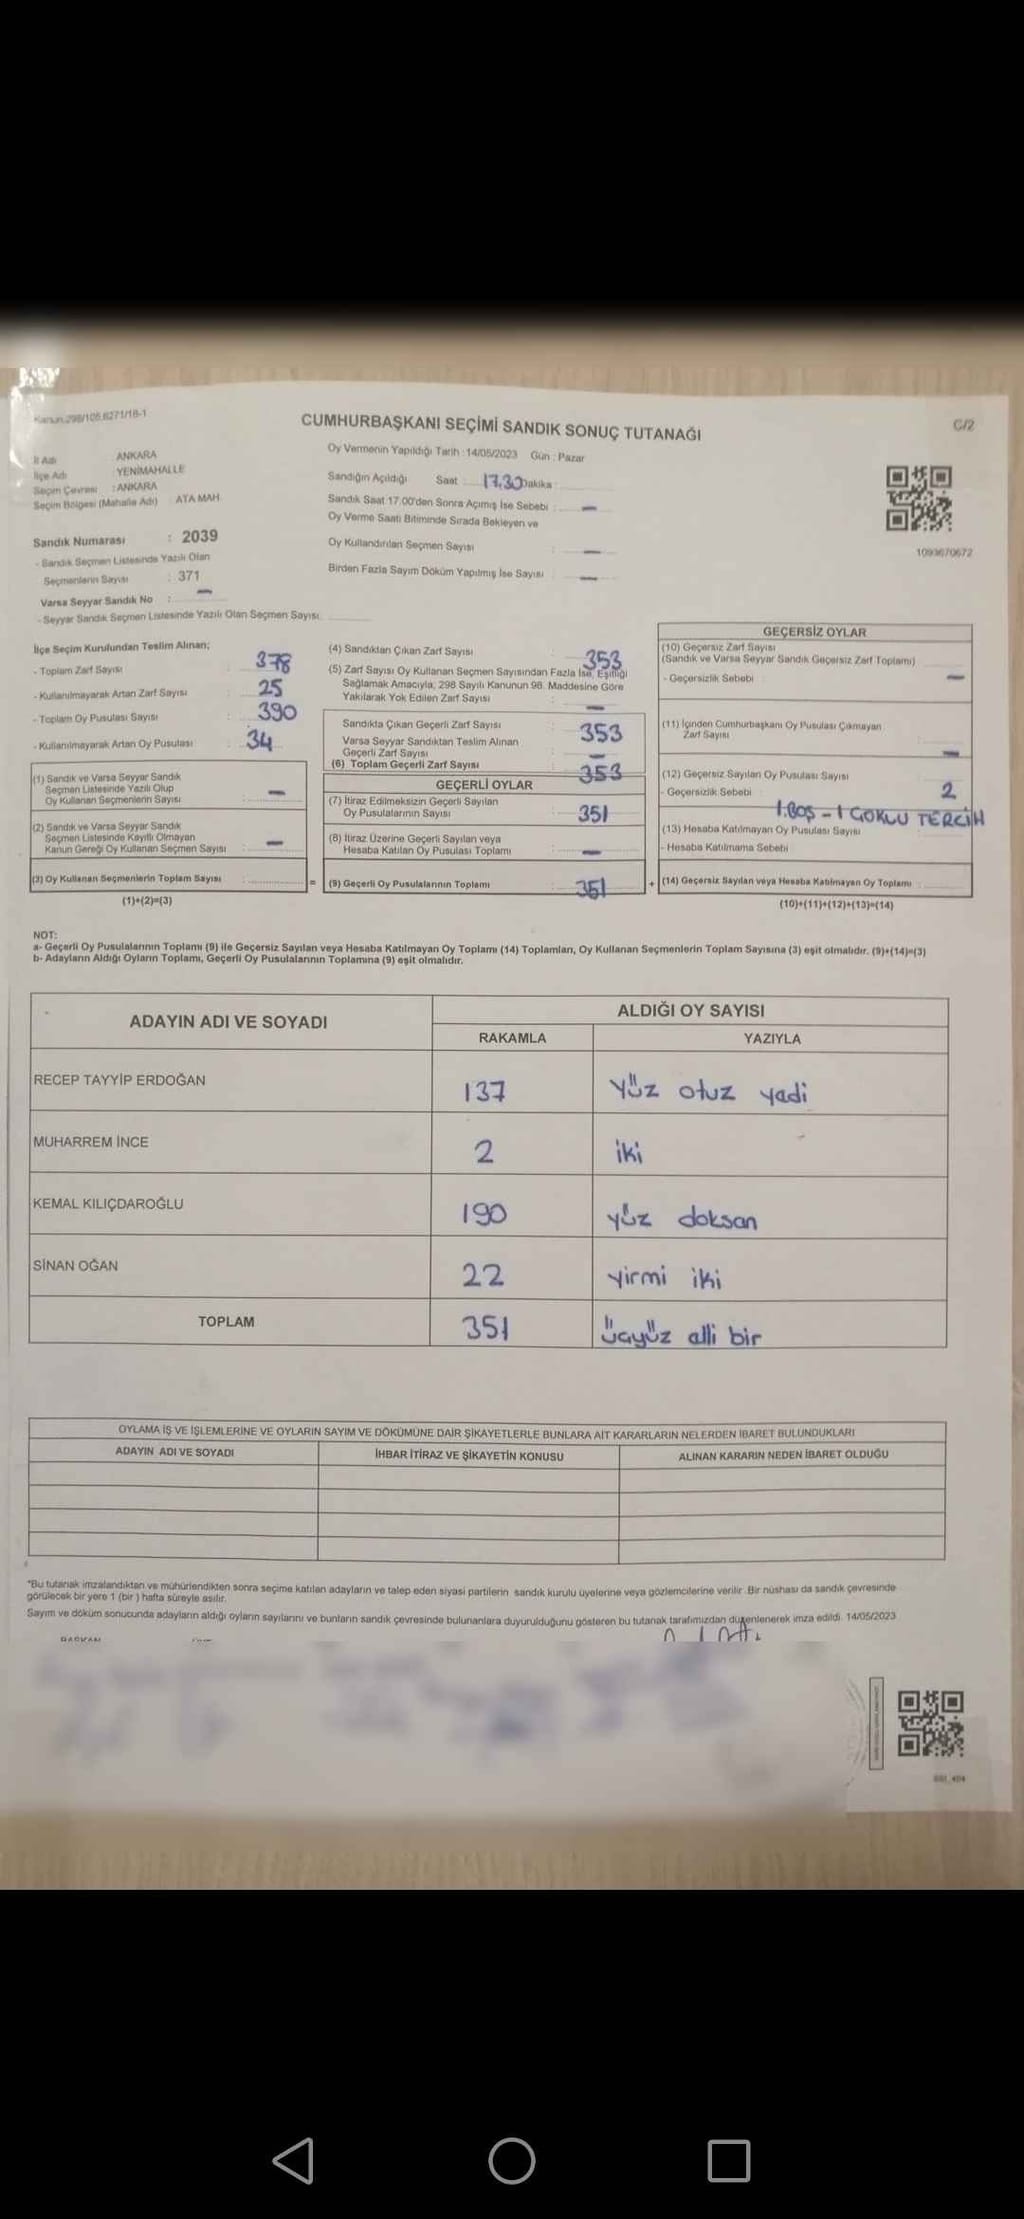 Kanun:298/105,6271/18-1
CUMHURBAŞKANI SEÇİMİ SANDIK SONUÇ TUTANAĞI
C/2
İl Adı : ANKARA
İlçe Adı : YENİMAHALLE
Seçim Çevresi : ANKARA
Seçim Bölgesi (Mahalle Adı) : ATA MAH.
Sandık Numarası : 2039
- Sandık Seçmen Listesinde Yazılı Olan
Seçmenlerin Sayısı : 371
Varsa Seyyar Sandık No : —
- Seyyar Sandık Seçmen Listesinde Yazılı Olan Seçmen Sayısı
Oy Vermenin Yapıldığı Tarih : 14/05/2023 Gün : Pazar
Sandığın Açıldığı Saat : 17.30 Dakika :
Sandık Saat 17.00'den Sonra Açımış İse Sebebi : —
Oy Verme Saati Bitiminde Sırada Bekleyen ve
Oy Kullandırılan Seçmen Sayısı : —
Birden Fazla Sayım Döküm Yapılmış İse Sayısı : —
1093670672
İlçe Seçim Kurulundan Teslim Alınan;
- Toplam Zarf Sayısı : 378
- Kullanılmayarak Artan Zarf Sayısı : 25
- Toplam Oy Pusulası Sayısı : 390
- Kullanılmayarak Artan Oy Pusulası : 34
(1) Sandık ve Varsa Seyyar Sandık
Seçmen Listesinde Yazılı Olup
Oy Kullanan Seçmenlerin Sayısı : —
(2) Sandık ve Varsa Seyyar Sandık
Seçmen Listesinde Kayıtlı Olmayan
Kanun Gereği Oy Kullanan Seçmen Sayısı : —
(3) Oy Kullanan Seçmenlerin Toplam Sayısı :
(1)+(2)=(3)
(4) Sandıktan Çıkan Zarf Sayısı : 353
(5) Zarf Sayısı Oy Kullanan Seçmen Sayısından Fazla İse, Eşitliği
Sağlamak Amacıyla, 298 Sayılı Kanunun 98. Maddesine Göre
Yakılarak Yok Edilen Zarf Sayısı : —
Sandıkta Çıkan Geçerli Zarf Sayısı : 353
Varsa Seyyar Sandıktan Teslim Alınan
Geçerli Zarf Sayısı : —
(6) Toplam Geçerli Zarf Sayısı : 353
GEÇERLİ OYLAR
(7) İtiraz Edilmeksizin Geçerli Sayılan
Oy Pusulalarının Sayısı : 351
(8) İtiraz Üzerine Geçerli Sayılan veya
Hesaba Katılan Oy Pusulası Toplamı : —
= (9) Geçerli Oy Pusulalarının Toplamı : 351
GEÇERSİZ OYLAR
(10) Geçersiz Zarf Sayısı
(Sandık ve Varsa Seyyar Sandık Geçersiz Zarf Toplamı)
- Geçersizlik Sebebi : —
(11) İçinden Cumhurbaşkanı Oy Pusulası Çıkmayan
Zarf Sayısı : —
(12) Geçersiz Sayılan Oy Pusulası Sayısı
- Geçersizlik Sebebi : 2
1.BOŞ - 1 ÇOKLU TERCİH
(13) Hesaba Katılmayan Oy Pusulası Sayısı
- Hesaba Katılmama Sebebi
+ (14) Geçersiz Sayılan veya Hesaba Katılmayan Oy Toplamı :
(10)+(11)+(12)+(13)=(14)
NOT:
a- Geçerli Oy Pusulalarının Toplamı (9) ile Geçersiz Sayılan veya Hesaba Katılmayan Oy Toplamı (14) Toplamları, Oy Kullanan Seçmenlerin Toplam Sayısına (3) eşit olmalıdır. (9)+(14)=(3)
b- Adayların Aldığı Oyların Toplamı, Geçerli Oy Pusulalarının Toplamına (9) eşit olmalıdır.
ADAYIN ADI VE SOYADI
ALDIĞI OY SAYISI
RAKAMLA YAZIYLA
RECEP TAYYİP ERDOĞAN 137 yüz otuz yadi
MUHARREM İNCE 2 iki
KEMAL KILIÇDAROĞLU 190 yüz doksan
SİNAN OĞAN 22 yirmi iki
TOPLAM 351 üçyüz elli bir
OYLAMA İŞ VE İŞLEMLERİNE VE OYLARIN SAYIM VE DÖKÜMÜNE DAİR ŞİKAYETLERLE BUNLARA AİT KARARLARIN NELERDEN İBARET BULUNDUKLARI
ADAYIN ADI VE SOYADI İHBAR İTİRAZ VE ŞİKAYETİN KONUSU ALINAN KARARIN NEDEN İBARET OLDUĞU
*Bu tutanak imzalandıktan ve mühürlendikten sonra seçime katılan adayların ve talep eden siyasi partilerin sandık kurulu üyelerine veya gözlemcilerine verilir. Bir nüshası da sandık çevresinde
görülecek bir yere 1 (bir) hafta süreyle asılır.
Sayım ve döküm sonucunda adayların aldığı oyların sayılarını ve bunların sandık çevresinde bulunanlara duyurulduğunu gösteren bu tutanak tarafımızdan düzenlenerek imza edildi. 14/05/2023
BAŞKAN